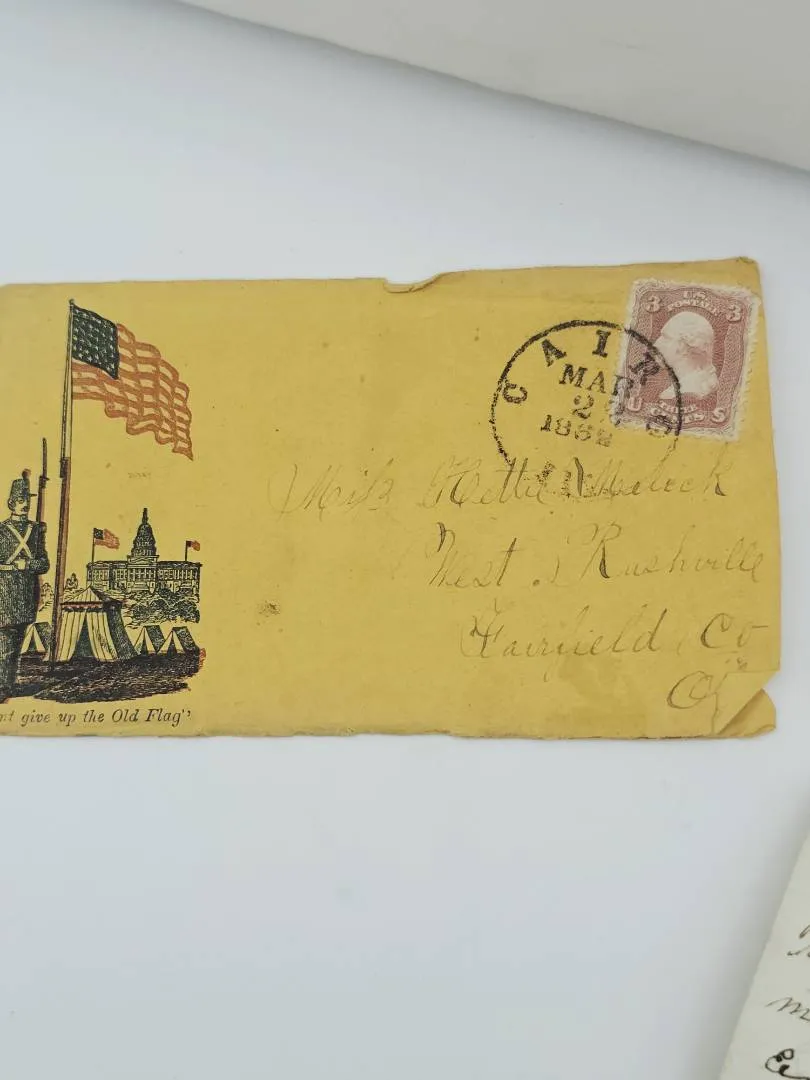 3 U.S. 3
POSTAGE
U THREE S
CENTS
CAIRO
MAR
1862
Miss Hettie
West Rushville
Fairfield Co
O
nt give up the Old Flag"